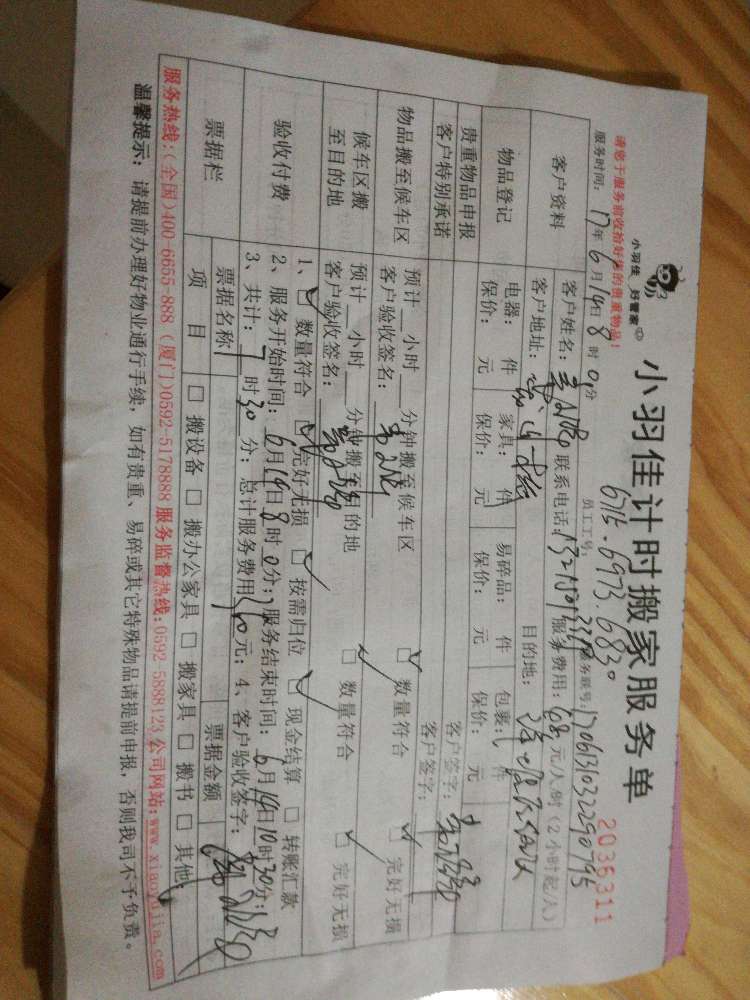 小羽佳 好管家
小羽佳计时搬家服务单
2035311
请您于服务前收拾好您的贵重物品！
员工工号：6716.6973.6830
服务时间：17年6月14日8时0分
服务联号：
客户资料
客户姓名： 联系电话： 服务费用：68元/人/时（2小时起/人）
客户地址： 目的地：
物品登记
电器： 件 家具： 件 易碎品： 件 包裹： 件
保价： 元 保价： 元 保价： 元 保价： 元
贵重物品申报 客户签字：
客户特别承诺 客户签字：
物品搬至候车区
预计 小时 分钟搬至候车区
客户验收签名： 数量符合 完好无损
候车区搬至目的地
预计 小时 分钟搬至目的地
客户验收签名： 数量符合 完好无损
验收付费
1、 数量符合 完好无损 按需归位 现金结算 转账汇款
2、服务开始时间：6月14日8时0分；服务结束时间：6月14日10时30分；
3、共计：7时30分；总计服务费用 元；4、客户验收签字：
票据栏
票据名称 票据金额
项 目 搬设备 搬办公家具 搬家具 搬书 其他
服务热线：(全国)400-6655-888 (厦门)0592-5178888 服务监督热线：0592-5888123 公司网站：www.xiaoyujia.com
温馨提示：请提前办理好物业通行手续，如有贵重、易碎或其它特殊物品请提前申报，否则我司不予负责。